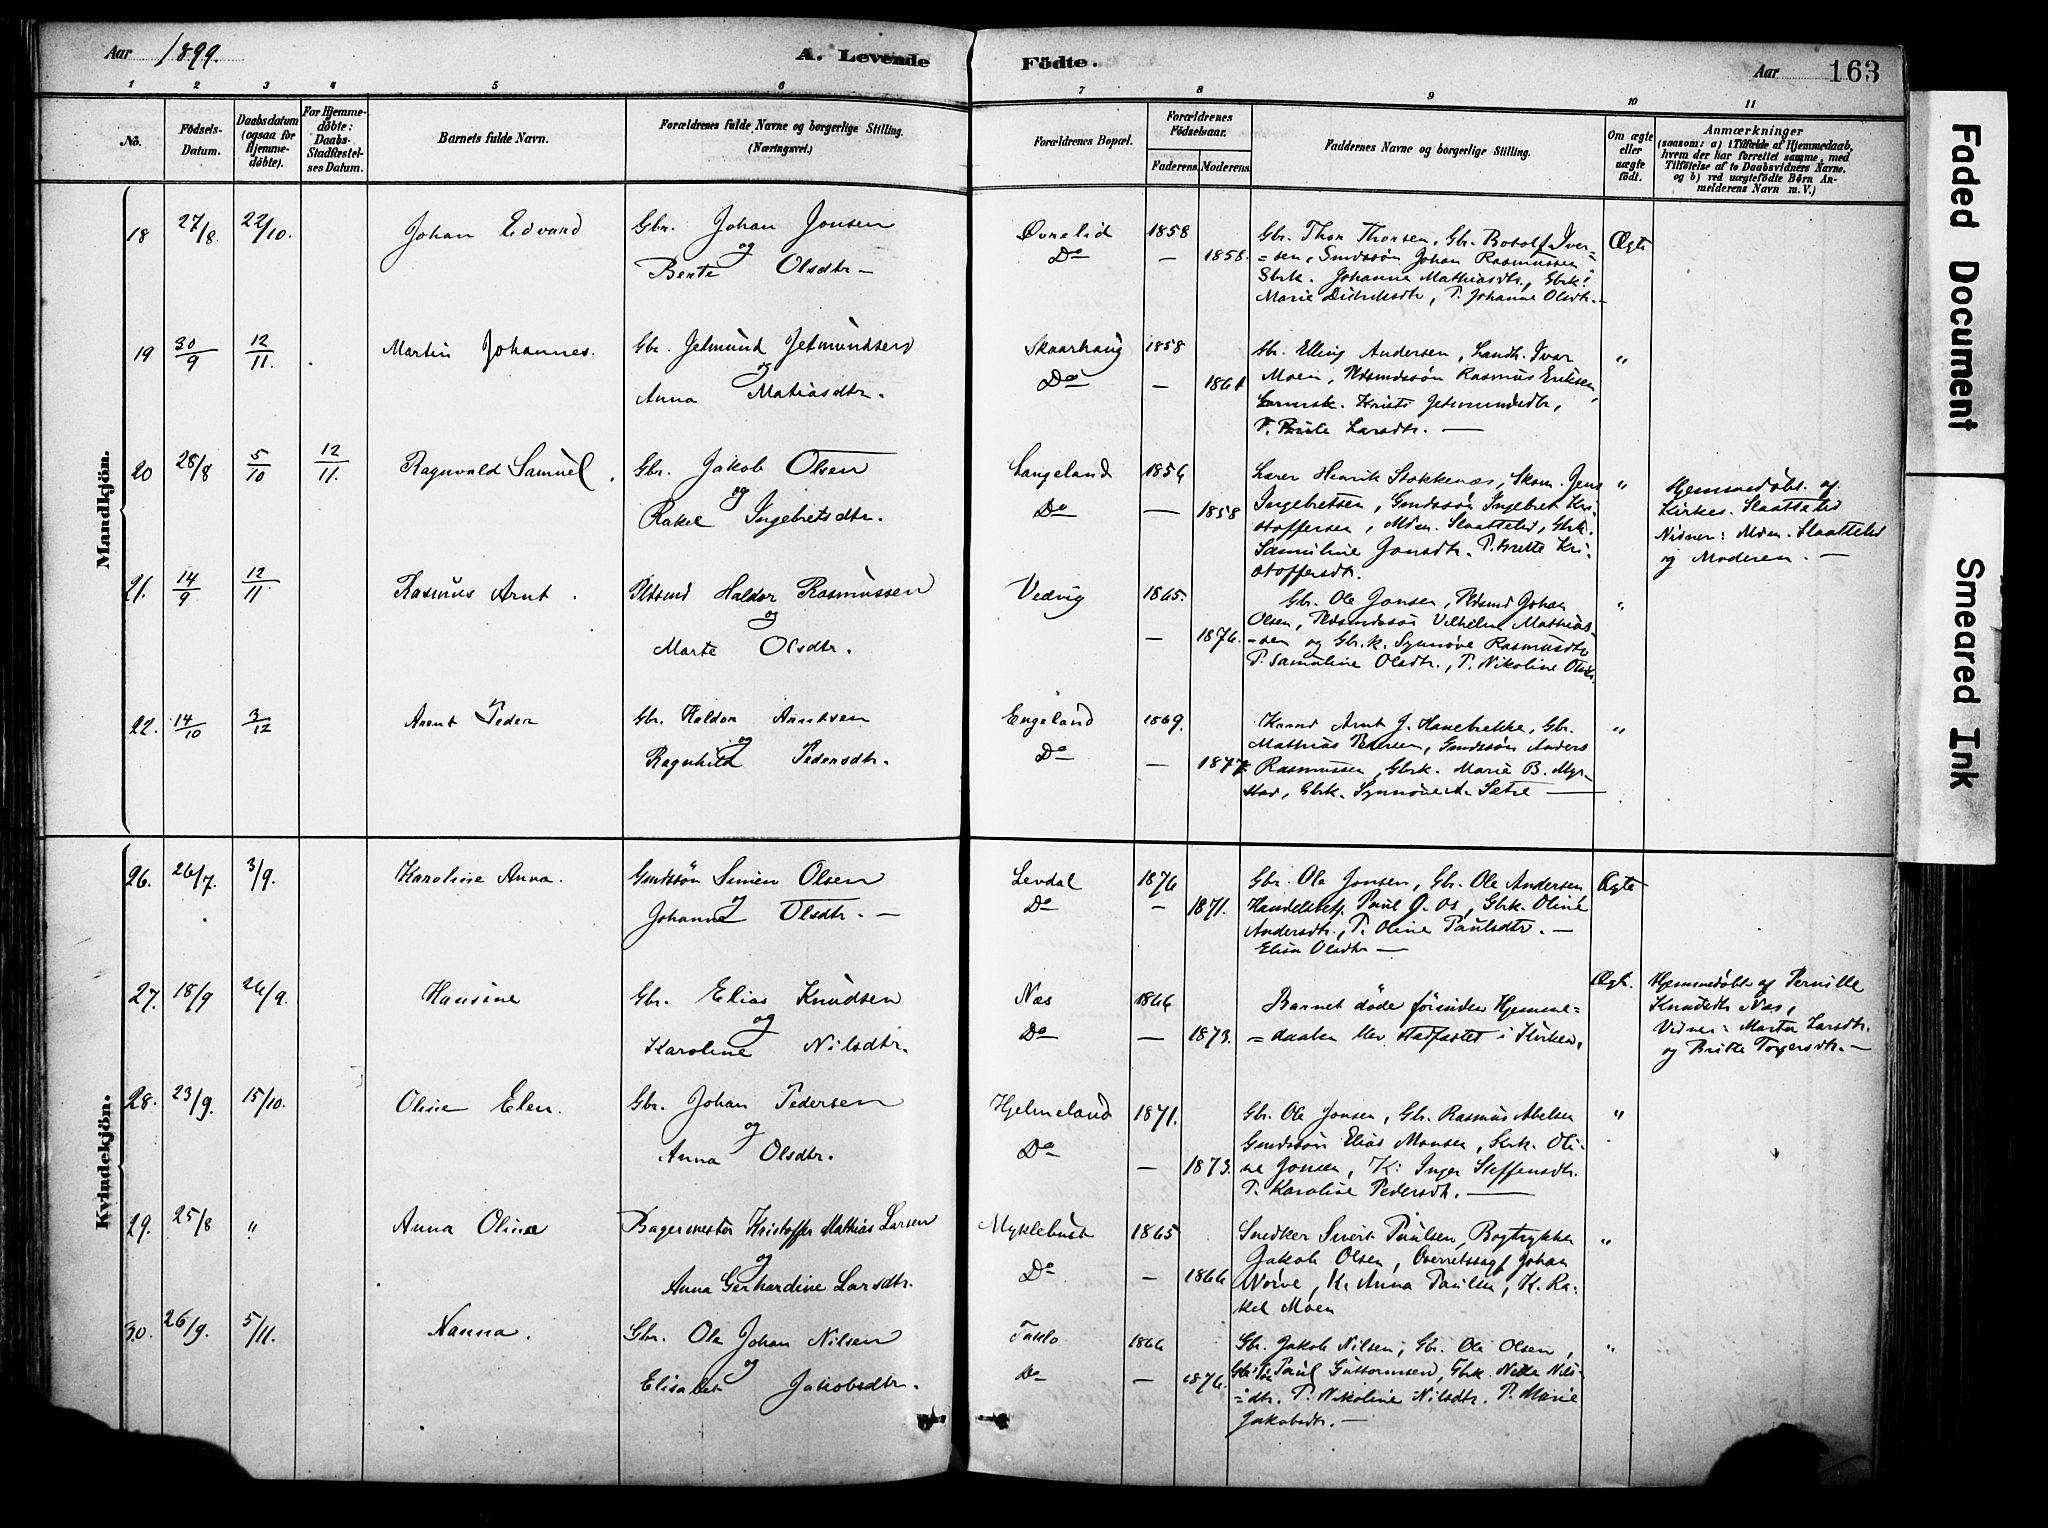 Aar 1899.
A. Levende Födte.
Aar 163
1 2 3 4 5 6 7 8 9 10 11
No.
Födsels-Datum.
Daabsdatum (ogsaa for Hjemmedöbte).
For Hjemmedöbte: Daabs-Stadfæstelses Datum.
Barnets fulde Navn.
Forældrenes fulde Navne og borgerlige Stilling. (Næringsvei.)
Forældrenes Bopæl.
Forældrenes Födselsaar.
Faderens. Moderens.
Faddernes Navne og borgerlige Stilling.
Om ægte eller uægte födt.
Anmærkninger
(saasom: a) i Tilfælde af Hjemmedaab,
hvem der har forrettet samme, med
Tilföielse af to Daabsvidners Navne.
og b) ved uægtefödte Börn An-
melderens Navn m. V.)
Mandkjön.
18 27/8. 22/10. Johan Edvard
Gbr. Johan Jonsen
og
Berte Olsdtr. —
Øvrelid 1858
Do — 1858.
Gbr. Thor Thorsen, Gbr. Botolf Iver-
=sen, Gmdssön Johan Rasmussen
Gbrk. Johanne Mathiasdtr., Gbrk.
Marie Didriksdtr, P. Johanne Olsdtr. —
Ægte
19 30/9 12/11. Martin Johannes.
Gbr. Jetmund Jetmundsen
og
Anna Matiasdtr.
Skaarhaug 1858
Do — 1861
Gbr. Elling Andersen, Landh. Ivar
Moen, Rasmus Eriksen,
Jetmundsdtr,
P. Larsdtr. —
"
20 28/8 5/10 12/11. Ragnvald Samuel.
Gbr. Jakob Olsen
og
Rakel Ingebretsdtr.
Langeland 1856
Do — 1858
Lærer Henrik Stokkenæs, Skom. Jens
Ingebretsen, Gmdssön Ingebret Kri-
stoffersen, Mdm. Slaattelid, Gbrk.
Samuline Jonsdtr. P. Brette Kri-
stoffersdtr.
"
Hjemmedøbt af
Kirkes. Slaattelid
Vidner: Mdm. Slaattelid
og Moderen. —
21. 14/9 12/11 Rasmus Arnt.
Pldsmd Haldor Rasmussen
og
Marte Olsdtr.
Vedvig 1865.
— 1876.
Gbr. Ole Jonsen, Pldsmd Johan
Olsen, Pldsmdssön Vilhelm Mathias-
=sen og Gbr.k. Synnöve Rasmusdtr
P. Samuline Olsdtr., P. Nikoline Olsdtr.
"
22. 14/10 3/12 Arent Peder
Gbr. Haldor Arentsen
og
Ragnhild Pedersdtr.
Engeland 1869.
Do — 1877.
Arnt J. Hanebrekke, Gbr.
Mathias Pedersen, Gmdssön Anders
Rasmussen, Gbrk. Marie B. Myr-
stad, Gbrk. Synnöve A. Sætre —
"
Kvindekjön.
26. 26/7. 3/9. Karoline Anna.
Gmdssön Simen Olsen
og
Johanne Olsdtr. —
Levdal 1876
Do — 1871.
Gbr. Ole Jonsen, Gbr. Ole Andersen
Handelsbetj. Paul J. Os, Gbrk. Oline
Andersdtr., P. Oline Paulsdtr. —
Elisa Olsdtr —
Ægte
27. 18/9 26/9. Hansine
Gbr. Elias Knudsen
og
Karoline Nilsdtr.
Næs 1866
Do — 1873.
Barnet döde förinden Hjemme-
=daaben blev stadfæstet i Kirken.
Ægt.
Hjemmedøbt af Pernille
Knudsdtr Næs,
Vidner: Marta Larsdtr.
og Britte Torgersdtr. —
28. 23/9. 15/10. Oline Elen.
Gbr. Johan Pedersen
og
Anna Olsdtr.
Hjelmeland 1871.
Do — 1873.
Gbr. Ole Jonsen, Gbr. Rasmus Abelsen
Gmdssön Elias Monsen, Gbrk. Oli-
ne Jonsen, K: Inger Steffensdtr.
P. Karoline Pedersdtr. —
"
29. 25/8 " Anna Oline
Bagermester Kristoffer Mathias Larsen
og
Anna Gerhardine Larsdtr.
Myklebust 1865
Do — 1866
Snedker Sivert Paulsen, Bogtrykker
Jakob Olsen, Overretssagf. Johan
K. Anna Paulsen, K. Ra-
kel Moen
"
30. 26/9. 5/11. Nanna.
Gbr. Ole Johan Nilsen
og
Elisabet Jakobsdtr.
Taklo 1866
Do — 1876.
Gbr. Jakob Nilsen, Gbr. Ole Olsen,
Paul Guttormsen, Gbrk. Nille Nils-
=dtr. P. Nikoline Nilsdtr. P. Marie
Jakobsdtr. —
"
Faded Document
Smeared Ink